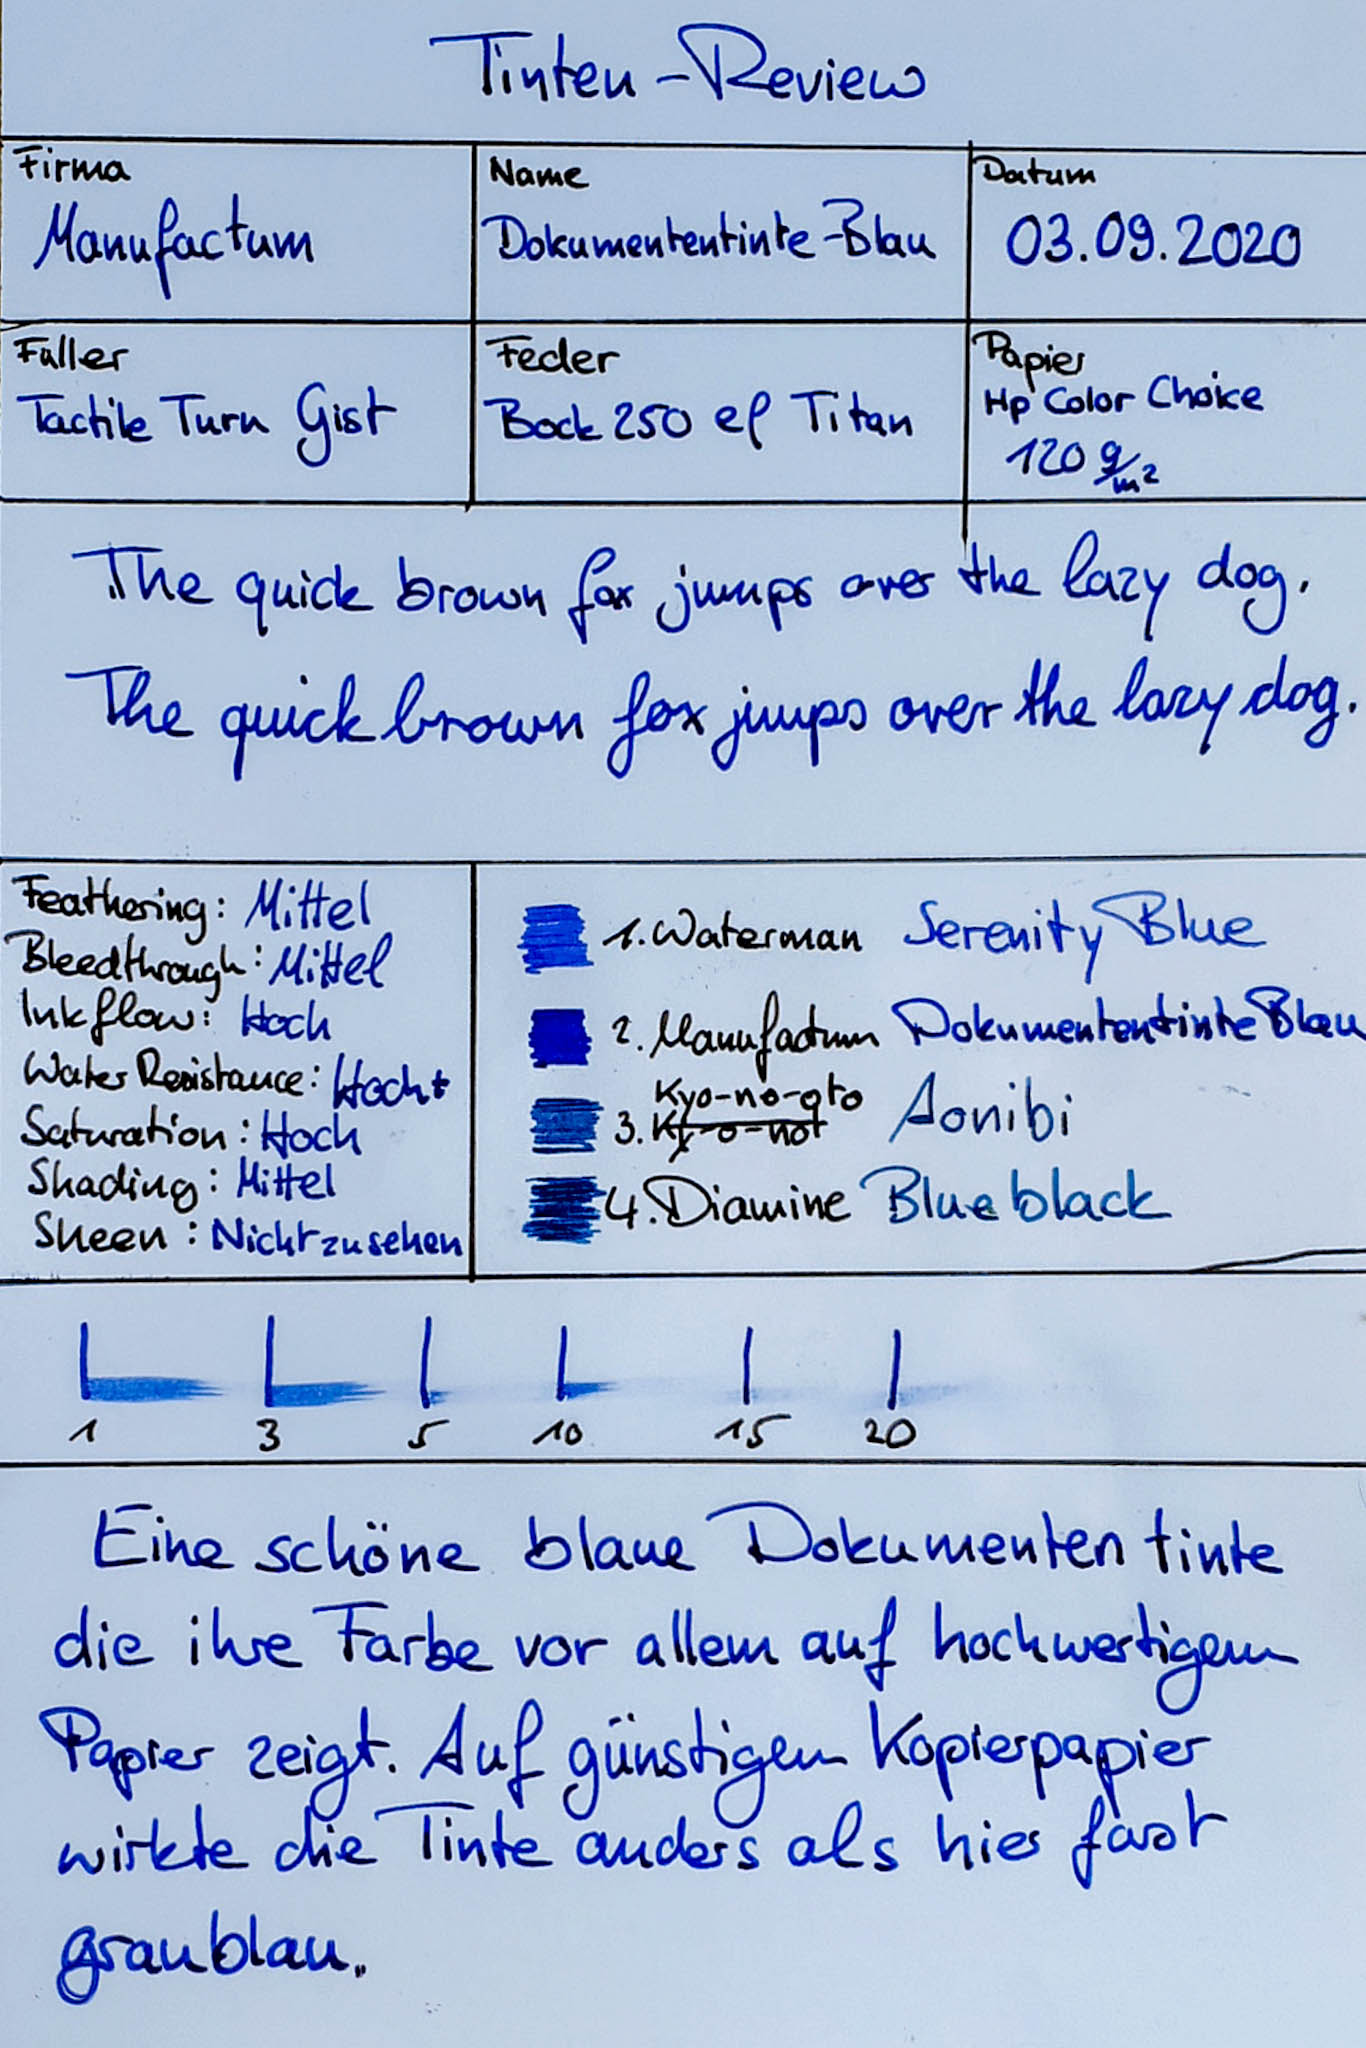 Tinten-Review
Firma
Manufactum
Name
Dokumententinte-Blau
Datum
03.09.2020
Füller
Tactile Turn Gist
Feder
Bock 250 ef Titan
Papier
Hp Color Choice
120 g/m²
The quick brown fox jumps over the lazy dog.
The quick brown fox jumps over the lazy dog.
Feathering: Mittel
Bleedthrough: Mittel
Inkflow: Hoch
Water Resistance: Hoch+
Saturation: Hoch
Shading: Mittel
Sheen: Nicht zu sehen
1. Waterman Serenity Blue
2. Manufactum Dokumententinte Blau
Kyo-no-oto Aonibi
3. Ky-o-not
4. Diamine Blueblack
1 3 5 10 15 20
Eine schöne blaue Dokumententinte
die ihre Farbe vor allem auf hochwertigem
Papier zeigt. Auf günstigem Kopierpapier
wirkte die Tinte anders als hier fast
graublau.